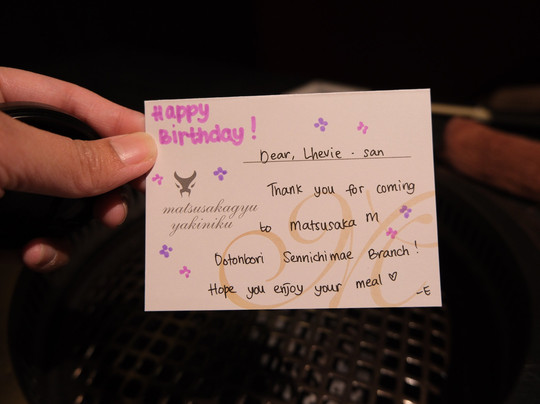 Happy
Birthday!
Dear, Lhevie - san
matsusakagyu
yakiniku
Thank you for coming
to Matsusaka M
Dotonbori Sennichimae Branch!
Hope you enjoy your meal ♡
-E
M